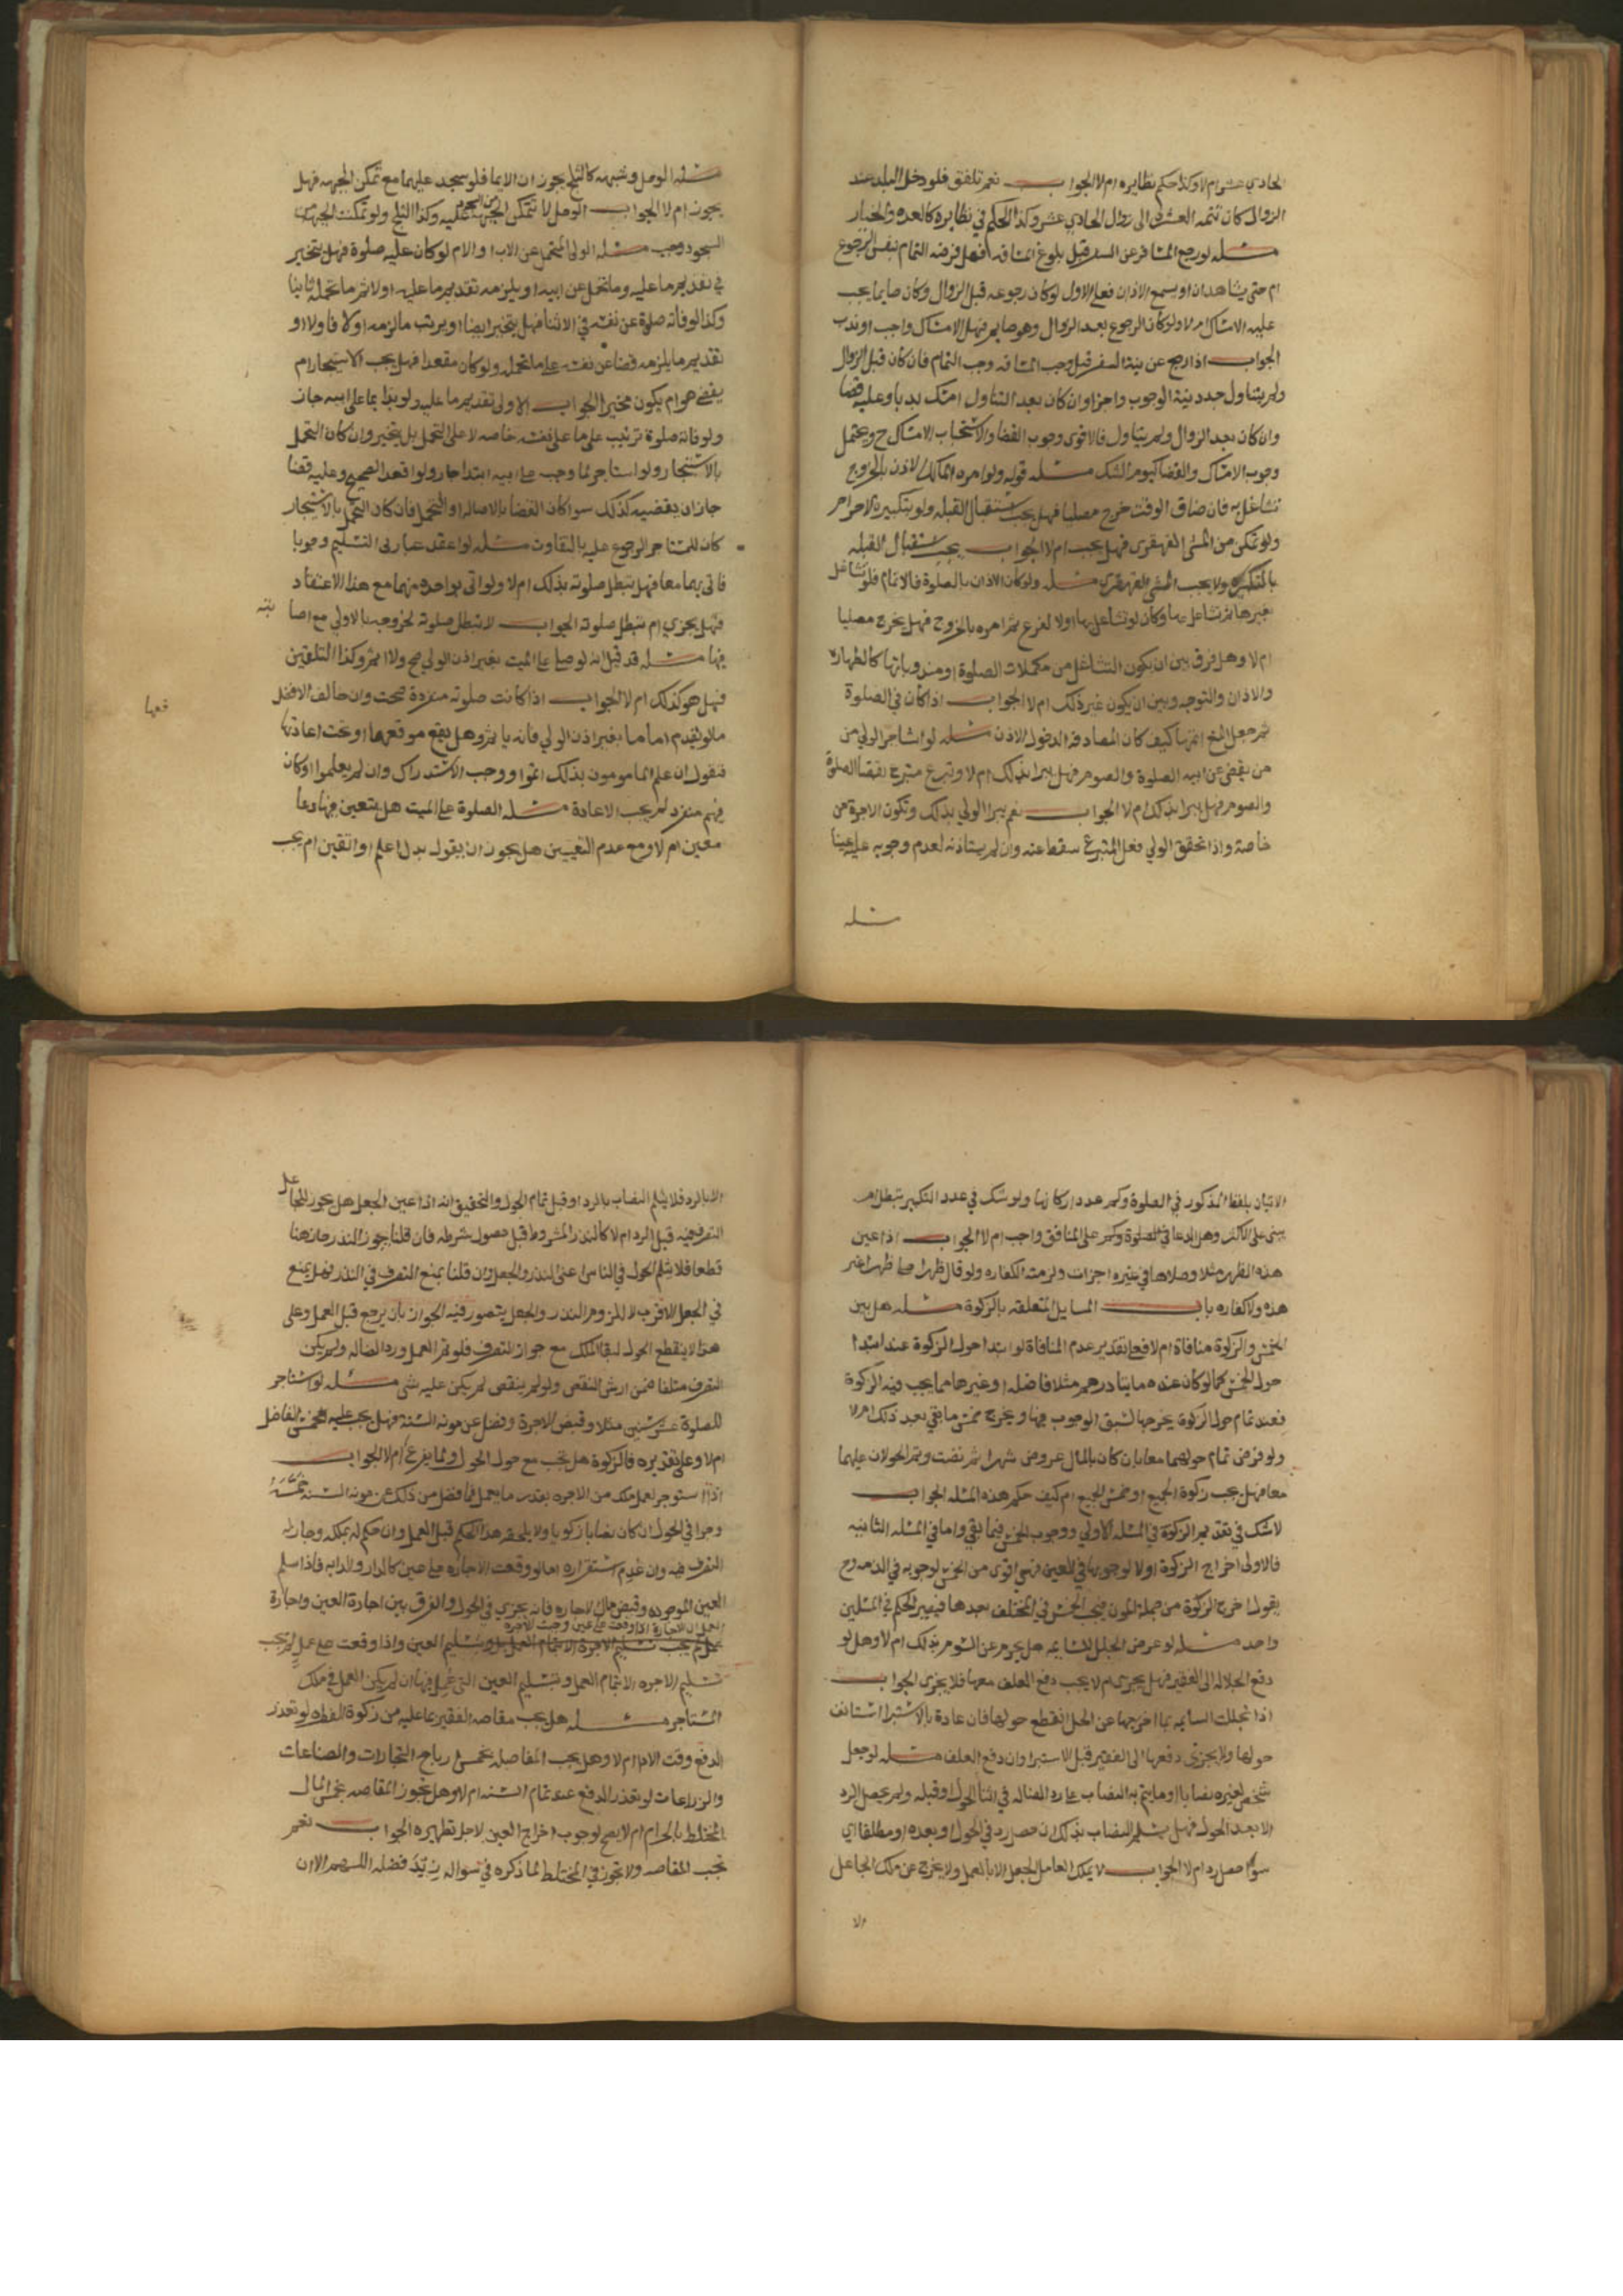 الحادي عشر ام لا وكذا حكم نظايره ام لا الجواب نعم تلفق فلو دخل البلد عند
الزوال كان تتمه العشرة الى زوال الحادي عشر وكذا الحكم في نظايره كالعده والخيار
مسئله لو رجع المسافر عن السفر قبل بلوغ المسافه فهل فرضه التمام بنفس الرجوع
ام حتى يشاهد ان او يسمع الاذان فعلى الاول لو كان رجوعه قبل الزوال وكان صايما يجب
عليه الامساك ام لا ولو كان الرجوع بعد الزوال وهو صايم فهل الامساك واجب او ندب
الجواب اذا رجع عن نية السفر قبل وجب المسافه وجب التمام فان كان قبل الزوال
ولم يتناول جدد نية الوجوب واجزا وان كان بعد التناول امسك ندبا وعليه قضا
وان كان بعد الزوال ولم يتناول فالاقوى وجوب القضا والاستحباب الامساك ح ويحتمل
وجوب الامساك والقضا كيوم الشك مسئله قوله ولو امره المالك الاذن بالخروج
تشاغل به فان ضاق الوقت خرج مصليا فهل يجب استقبال القبله ولو بتكبيرة الاحرام
ولو تمكن من المشى القهقرى فهل يجب ام لا الجواب يجب استقبال القبله
بالتكبيره ولا يجب المشى القهقرى مسئله ولو كان الاذن بالصلوة فالاتمام فلو تشاغل
بغيرها ثم تشاغل بها وكان لو تشاغل بها اولا لفرغ ثم امره بالخروج فهل يخرج مصليا
ام لا وهل فرق بين ان يكون التشاغل من مكملات الصلوة ومندوباتها كالطهارة
والاذان والتوجه وبين ان يكون غير ذلك ام لا الجواب اذا كان في الصلوة
كيف كان المصادفه الدخول الاذن مسئله لو استاجر الولي من
من يقضى عن ابيه الصلوة والصوم فهل يبرا بذلك ام لا وتبرع متبرع بقضا الصلوة
والصوم فهل يبرا بذلك ام لا الجواب نعم يبرا الولي بذلك وتكون الاجرة من
خاصة واذا تحقق الولي فعل المتبرع سقط عنه وان لم يستاذنه لعدم وجوبه عليه عينا
مسئله
مسئله الوحل وشبهه كالثلج يجوز ان الايما فلو سجد عليهما مع تمكن الجبهه فهل
يجوز ام لا الجواب الوحل لا تتمكن الجبهة من السجود عليه وكذا الثلج ولو تمكنت الجبهه من
السجود وجب مسئله الولى المتحمل عن الاب او الام لو كان عليه صلوة فهل يتخير
في تقديم ما عليه وما تحمل عن ابيه او يلزمه تقديم ما عليه اولا ثم ما تحمله ثانيا
وكذا لو فاته صلوة عن نفسه في الاثنا فهل يتخير ايضا او يرتب ما لزمه اولا فاولا او
تقديم ما يلزمه قضا عن نفسه على ما تحمله ولو كان مقعدا فهل يجب الاستيجار ام
يقضي هو ام يكون مخيرا الجواب الاولى تقديم ما عليه ولو بدا بما على ابيه جاز
ولو فاته صلوة ترتيب على ما على نفسه خاصه لا على التحمل بل يتخير وان كان التحمل
بالاستيجار ولو استاجر لما وجب على ابيه ابتدا جاز ولو اقعد الصحيح وعليه قضا
جاز ان يقضيه كذلك سوا كان القضا بالاصاله او التحمل فان كان التحمل بالاستيجار
كان للمستاجر الرجوع عليه بالتفاوت مسئله لو اعتقد عبارتى التسليم وجوبا
فاتى بهما معا فهل تبطل صلوته بذلك ام لا ولو اتى بواحدة منهما مع هذا الاعتقاد
فهل يجزي ام تبطل صلوته الجواب لا تبطل صلوته لخروجه بالاولى مع اصا بته
فيها مسئله قد قيل انه لو صلى على الميت بغير اذن الولي صح ولا اثم وكذا التلقين
فهل هو كذلك ام لا الجواب اذا كانت صلوته منفردة صحت وان خالف الافضل
فعها
ما لو تقدم اماما بغير اذن الولي فانه ياثم وهل يقع موقعها او تجب اعادتها
فنقول ان علم المامومون بذلك اثموا ووجب الاستدراك وان لم يعلموا او كان
فيهم منفرد لم يجب الاعادة مسئله الصلوة على الميت هل يتعين فيها دعا
معين ام لا ومع عدم التعيين هل يجوز ان يقول بدل اعلم او اتقين ام يجب
الاتيان بلفظ المذكور في الصلوة وكم عدد اركانها ولو شك في عدد التكبير تبطل ام
يبنى على الاكثر وهل الدعا في الصلوة وكبر على المنافق واجب ام لا الجواب اذا عين
هذه الظهر مثلا وصلاها في غيره اجزات ولزمته الكفاره ولو قال ظهرا صلى ظهرا غير
هذه ولا كفاره باب المسايل المتعلقه بالزكوة مسئله هل بين
الخمس والزكوة منافاة ام لا فعلى تقدير عدم المنافاة لو ابتدا حول الزكوة عند ابتدا
حول الخمس كما لو كان عنده مايتا درهم مثلا فاضله او غيرها مما يجب فيه الزكوة
فعند تمام حول الزكوة يخرجها لسبق الوجوب فيها ويخرج خمس ما بقي بعد ذلك ام لا
ولو فرض تمام حولهما معا بان كان بالمال عروض شهرا ثم نضت وتم الحولان عليهما
معا فهل يجب زكوة الجميع او خمس الجميع ام كيف حكم هذه المسئله الجواب
لا شك في تقديم الزكوة في المسئله الاولى ووجوب الخمس فيما بقي واما في المسئله الثانيه
فالاولى اخراج الزكوة اولا لوجوبها في العين فهي اقوى من الخمس لوجوبه في الذمه وح
يقول اخرج الزكوة من جملة المون فيجب الخمس في المختلف بعدها فيصير الحكم في المسئلتين
واحد مسئله لو عرض الجلل للسايمه هل يجوز عن السوم بذلك ام لا وهل لو
دفع الجلاله الى الفقير فهل يجزى ام لا يجب دفع العلف معها فلا يجزى الجواب
اذا تجللت السايمه بما اخرجها عن الحل انقطع حولها فان عادة بالاستبرا استانف
حولها ولا يجزى دفعها الى الفقير قبل الاستبرا وان دفع العلف مسئله لو جعل
شخص لغيره نصابا او ما يتم به النصاب على رد الضاله في اثنا الحول او قبله ولم يحصل الرد
الا بعد الحول فهل ينثلم النصاب بذلك ان حصل رد في الحول او بعده او مطلقا اي
سوا حصل رد ام لا الجواب لا يملك العامل الجعل الا بالعمل ولا يخرج عن ملك الجاعل
الا
الا بالرد فلا ينثلم النصاب بالرد او قبل تمام الحول والتحقيق انه اذا عين الجعل هل يجوز للجاعل
التصرف فيه قبل الرد ام لا كالنذر المشروط قبل حصول شرطه فان قلنا بجواز النذر جاز هنا
قطعا فلا ينثلم الحول في الناس اعنى النذر والجعل وان قلنا بمنع التصرف في النذر فهل يمنع
في الجعل الاقرب لا للزوم النذر والجعل يتصور فيه الجواز بان يرجع قبل العمل وعلى
هذا لا ينقطع الحول لبقا الملك مع جواز التصرف فلو تم العمل ورد الضاله ولم يكن
التصرف متلفا ضمن ارش النقص ولو لم ينقص لم يكن عليه شى مسئله لو استاجر
للصلوة عشر سنين مثلا وقبض الاجرة وفضل عن مونه السنة فهل يجب عليه خمس الفاضل
ام لا وعلى تقديره فالزكوة هل تجب مع حول الحول ولما يفرغ ام لا الجواب
اذا استوجر لعمل ملك من الاجره بقدر ما يعمل فما فضل من ذلك عن مونه السنه خمسه
وجرا في الحول ان كان نصابا زكويا ولا يلحقه هذا الحكم قبل العمل وان حكم له بملكه وجاز له
التصرف فيه وان عدم استقراره اما لو وقعت الاجاره على عين كالدار والدابه فاذا سلم
العين الموجوده وقبض مال الاجاره فانه يجزي في الحول والفرق بين اجارة العين واجارة
العمل ان الاجارة اذا وقعت على عين وجبت الاجره
بتسليم العين واذا وقعت على عمل لم يجب
تسليم الاجره الا بتمام العمل وتسليم العين التى عمل فيها ان لم يكن العمل في ملك
المستاجر مسئله هل يجب مقاصه الفقير بما عليه من زكوة الفطره لو تعذر
الدفع وقت الادا ام لا وهل يجب المفاصله بخمس ارباح التجارات والصناعات
والزراعات لو تعذر الدفع عند تمام السنه ام لا وهل تجوز المقاصه بخمس المال
المختلط بالحرام ام لا يصح لوجوب اخراج العين لاجل تطهيره الجواب نعم
تجب المقاصه ولا تجوز في المختلط لما ذكره في سواله زيد فضله اللهم الا ان